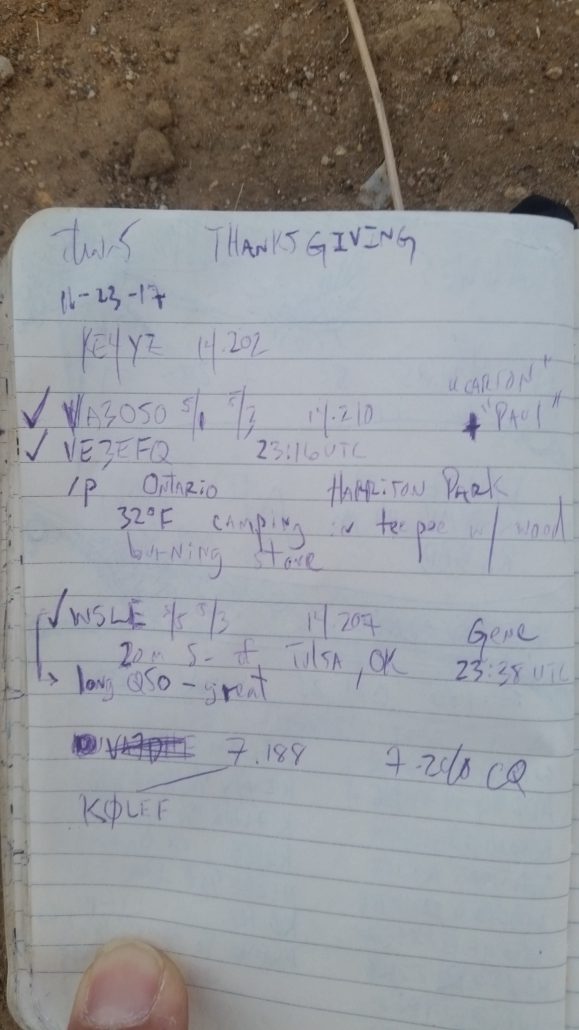 Thurs THANKSGIVING
11-23-17
KE4YZ 14.202
"CARLTON"
VA3OSO 5/1 5/3 14.210 "PAUL"
VE3EFQ 23:16 UTC
/P ONTARIO HARRISON PARK
32°F camping in tee pee w/ wood
burning stove
W5LE 5/5 5/3 14.207 Gene
20m S- of TULSA, OK 23:38 UTC
long QSO - great
7.188 CQ
KØLEF